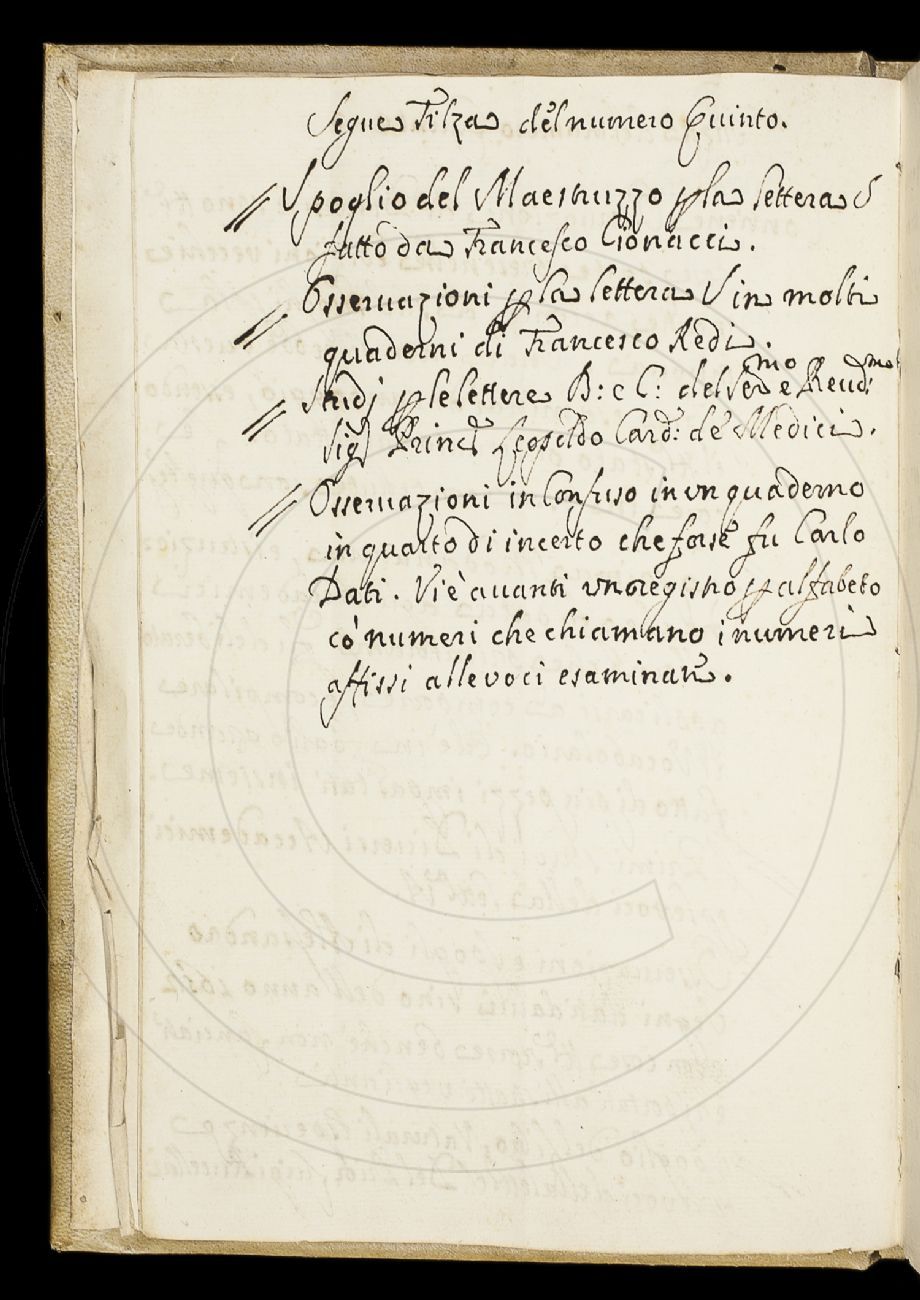 Segue Filza del numero Quinto.
// Spoglio del Maestruzzo p la lettera S
fatto da Francesco Cionacci.
// Osseruazioni p la lettera S in molti
quaderni di Francesco Redi.
// Studj p le lettere B: e C: del Ser.mo e Reud:mo
Sig.r Princ. Leopoldo Card: de Medici.
// Osseruazioni in Confuso in vn quaderno
in quarto di incerto che forse fu Carlo
Dati. Vi è auanti vn registro p alfabeto
có numeri che chiamano i numeri
affissi alle voci esaminate.